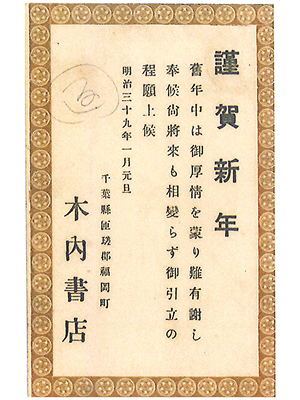 謹賀新年
舊年中は御厚情を蒙り難有謝し
奉候尙將來も相變らず御引立の
程願上候
明治三十九年一月元旦
千葉縣匝瑳郡福岡町
木內書店